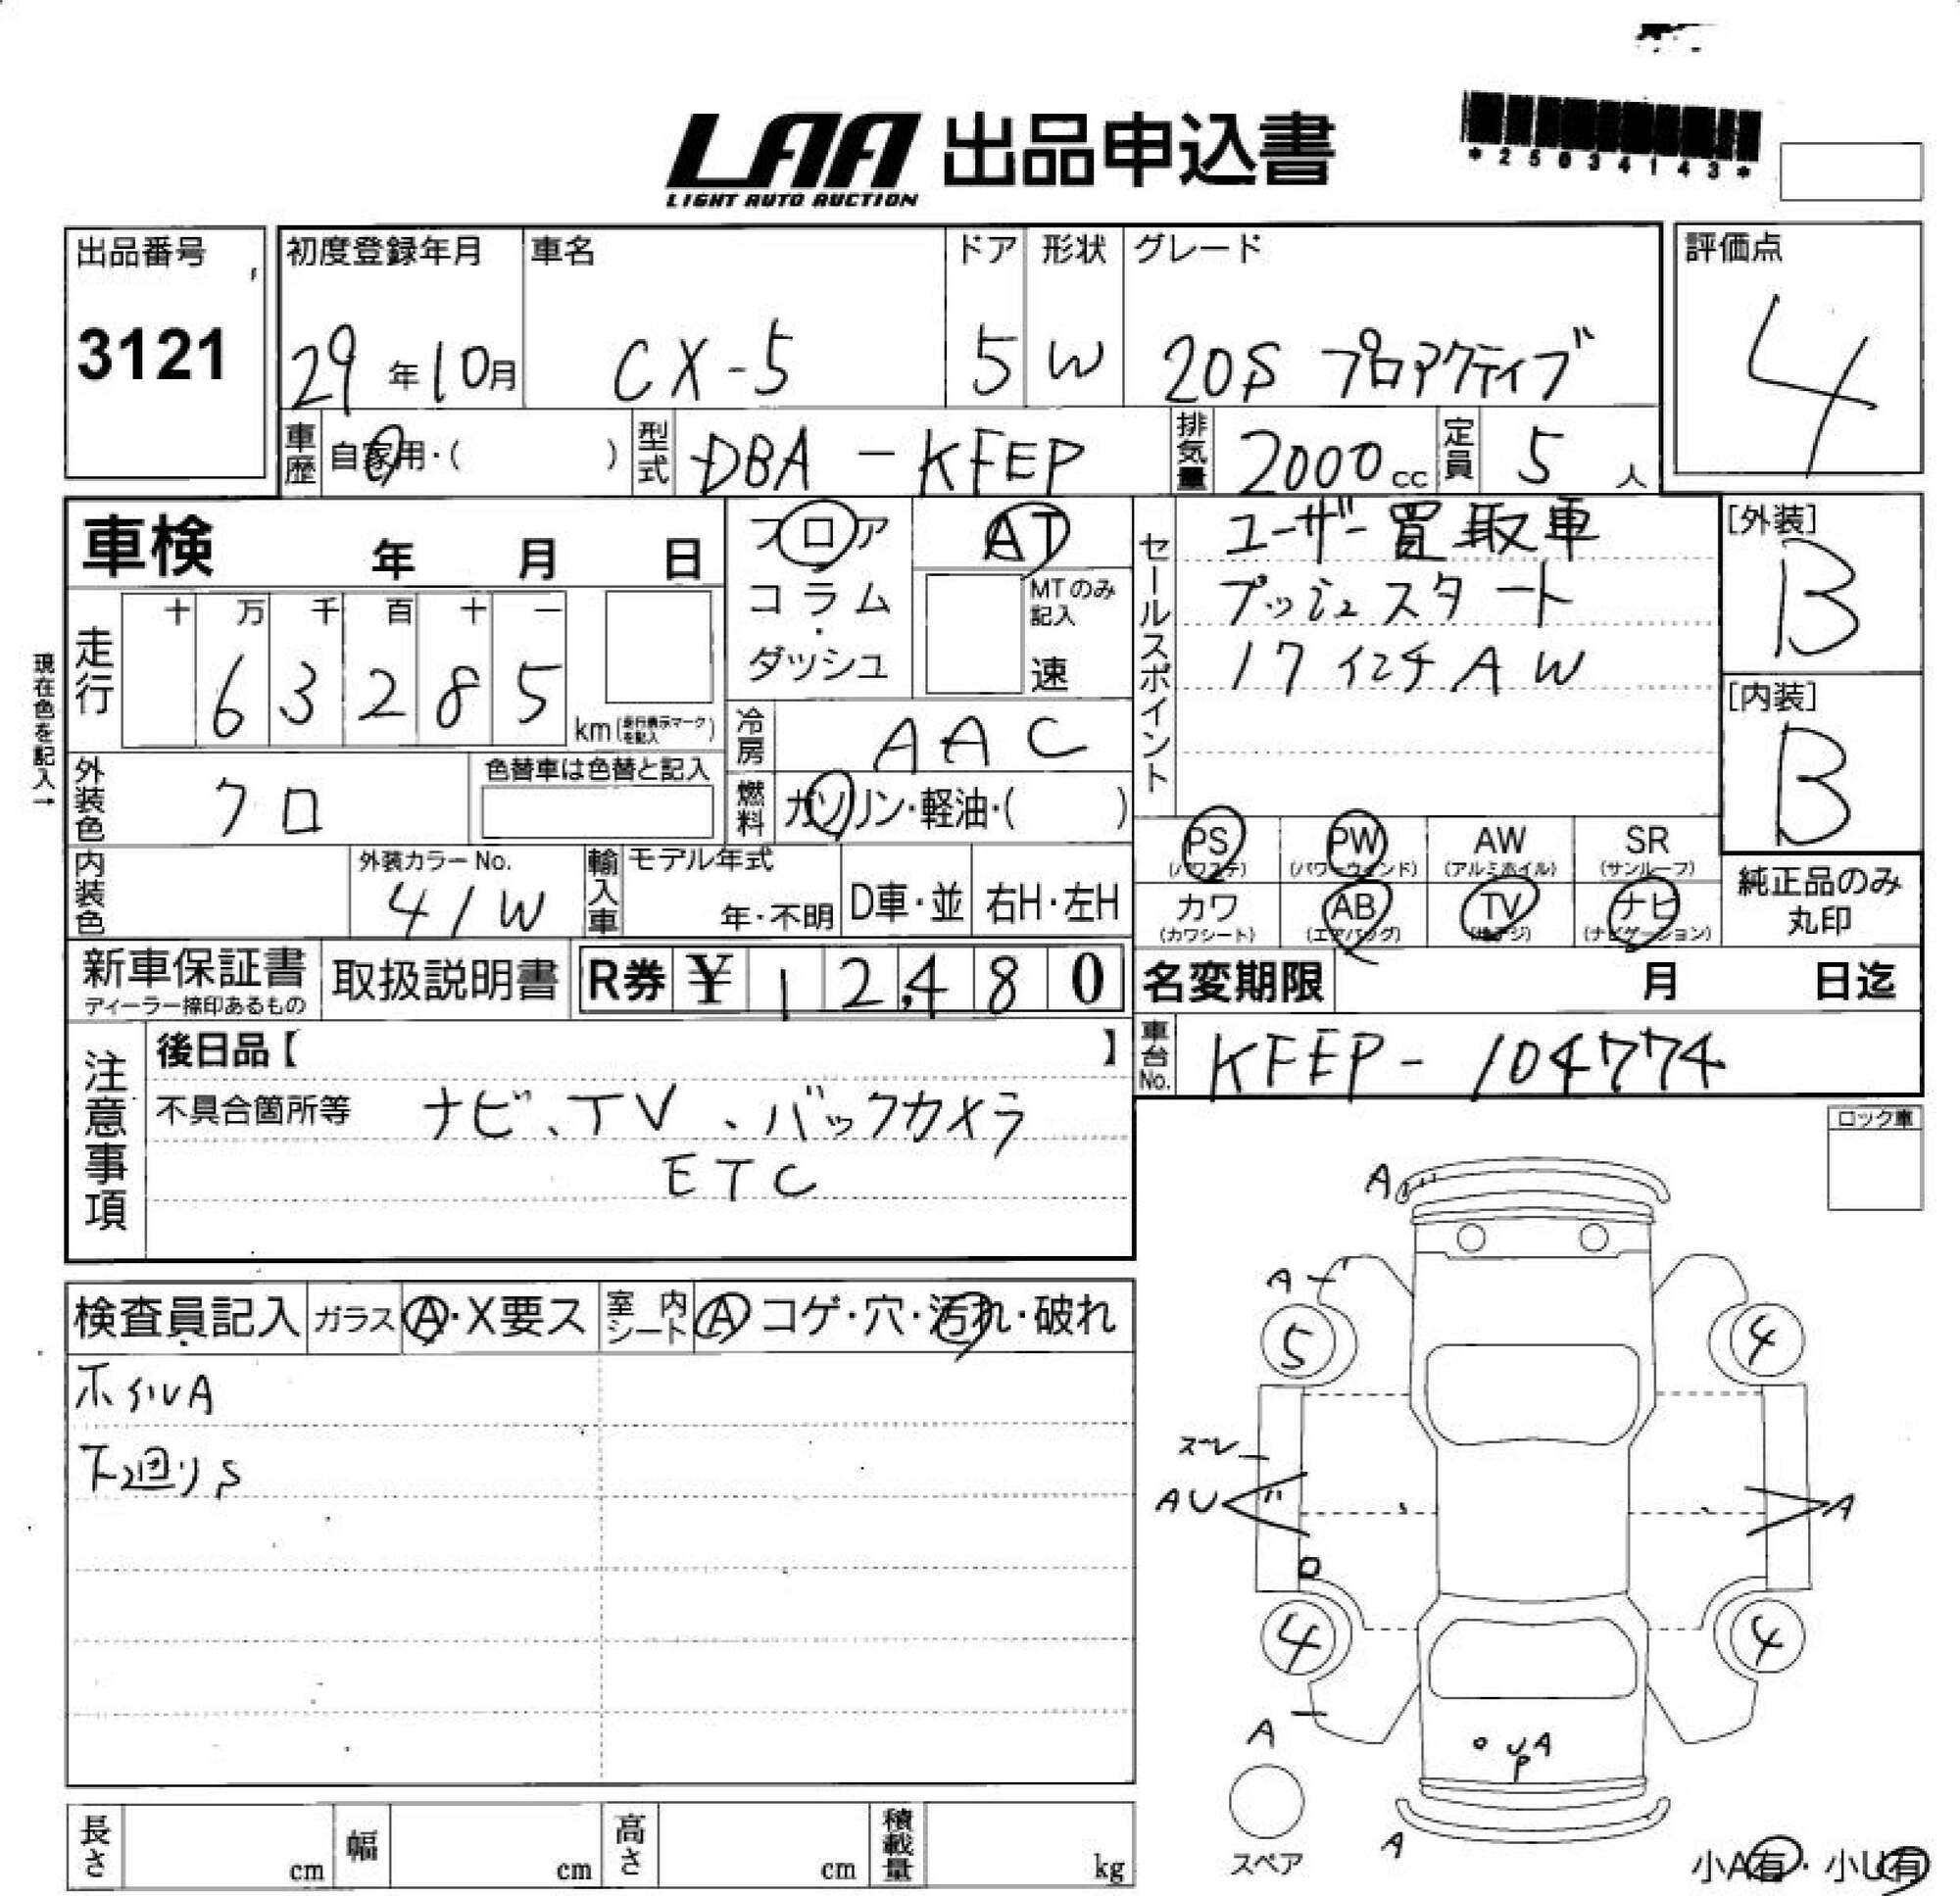 LAA 出品申込書
LIGHT AUTO AUCTION
*25034143*
出品番号
3121
初度登録年月
29年10月
車名
CX-5
ドア
5
形状
W
グレード
20S プロアクティブ
評価点
4
車歴
自家用・( )
型式
DBA-KFEP
排気量
2000cc
定員
5人
車検 年 月 日
フロア
コラム・ダッシュ
AT
MTのみ記入
速
セールスポイント
ユーザー買取車
プッシュスタート
17インチAW
[外装]
B
[内装]
B
現在色を記入→
走行
十 万 千 百 十 一
63285
km(走行表示マークを記入)
冷房
AAC
燃料
ガソリン・軽油・( )
外装色
クロ
色替車は色替と記入
内装色
外装カラーNo.
41W
輸入車
モデル年式
年・不明
D車・並
右H・左H
PS
(パワステ)
PW
(パワーウィンド)
AW
(アルミホイル)
SR
(サンルーフ)
カワ
(カワシート)
AB
(エアバッグ)
TV
(地デジ)
ナビ
(ナビゲーション)
純正品のみ
丸印
新車保証書
ディーラー捺印あるもの
取扱説明書
R券 ¥12,480
名変期限 月 日迄
車台No.
KFEP-104774
注意事項
後日品【 】
不具合箇所等
ナビ、TV、バックカメラ
ETC
ロック車
検査員記入
ガラス
A・X要ス
室内シート
A コゲ・穴・汚れ・破れ
ホイルA
下廻りS
A
A
5
4
スレ
AU
A
4
4
A
UA
P
A
スペア
小A有・小U有
長さ cm
幅 cm
高さ cm
積載量 kg